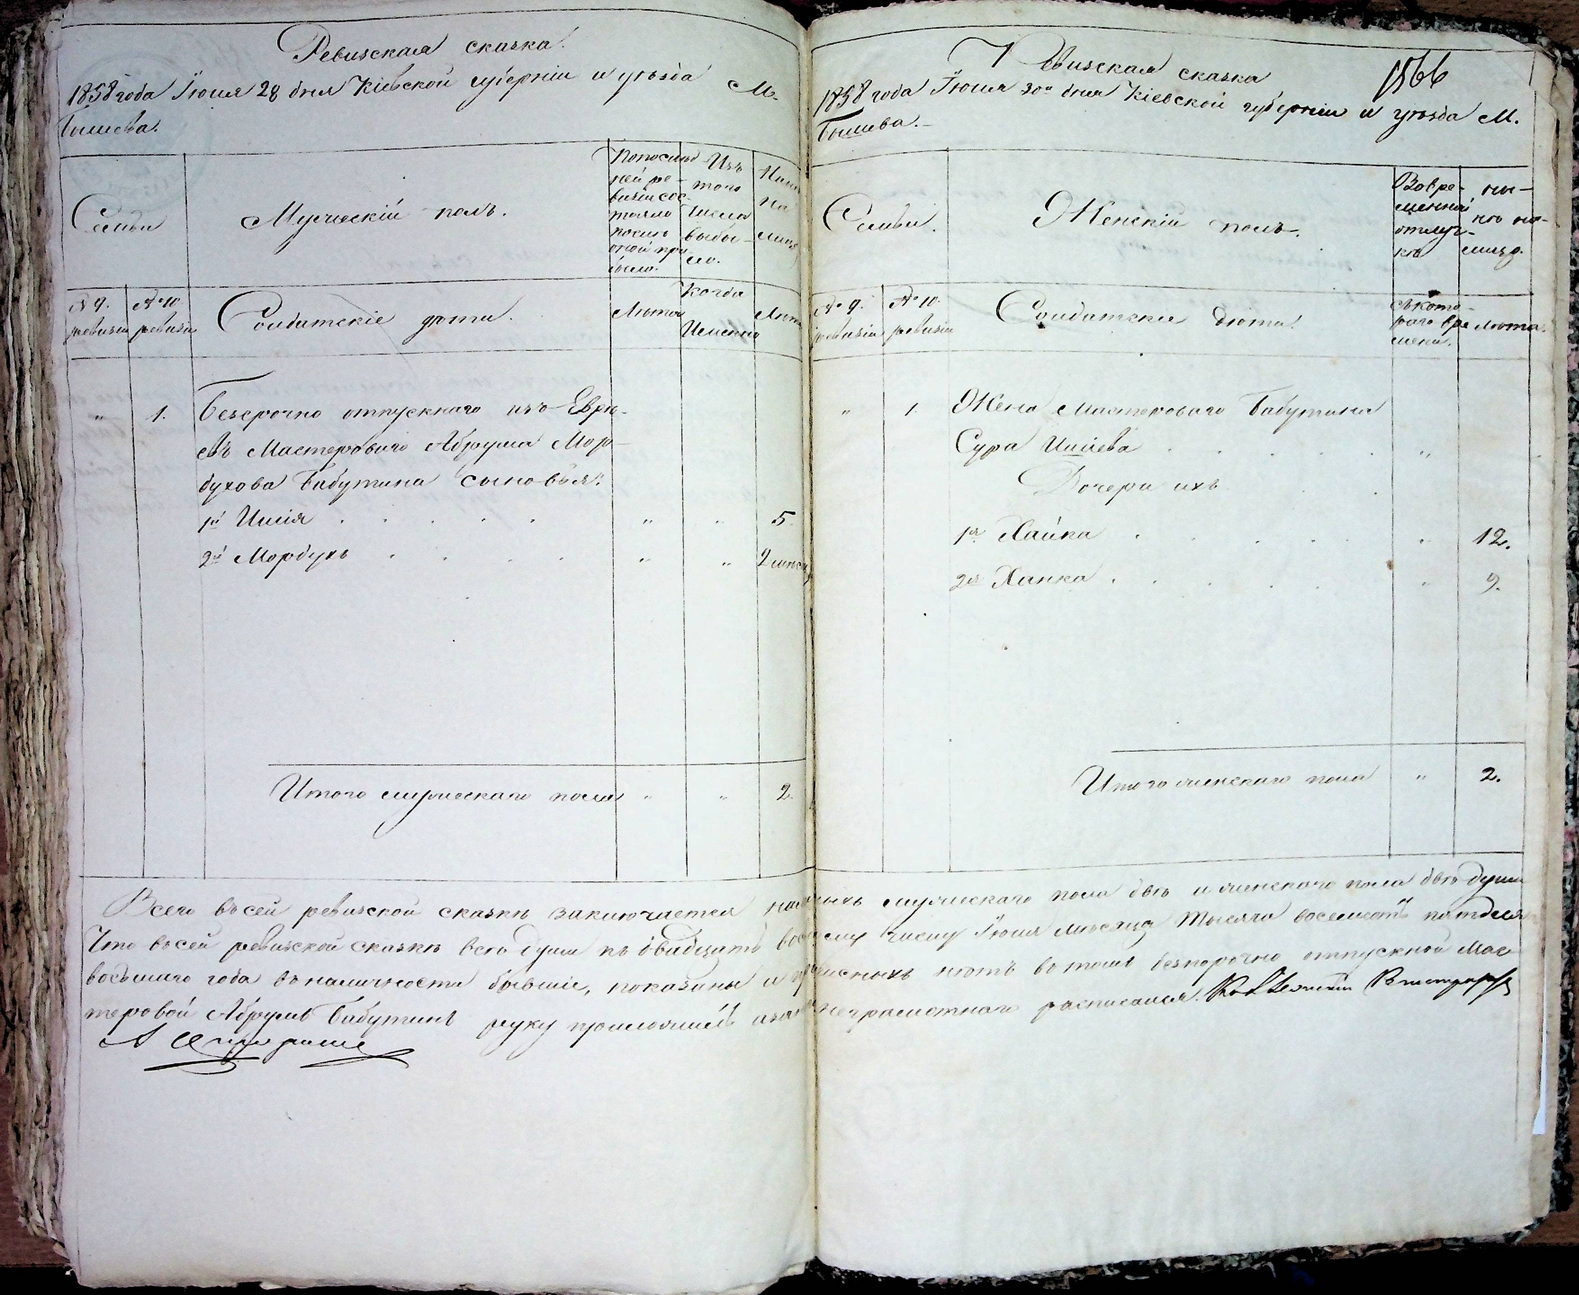 Ревизская сказка.
1858 года Іюня 28 дня Кіевской губерніи и уѣзда М.
Бышева.
Семьи
Мужескій полъ.
По послѣд-
ней ре-
визіи сос-
тояло
и послѣ
оной при
было.
Изъ
того
числа
выбы-
ло.
Нынѣ
на
лицо
№ 9.
ревизіи
№ 10
ревизіи
Солдатскіе дѣти.
Лѣта
Когда
Именно
Лѣта
"
1.
Безсрочно отпускнаго изъ Евре-
евъ Мастероваго Абрума Мор-
духова Бабутина сыновья:
1й Ишія " " 5
2й Мордухъ " " 2 мѣсяц
Итого мужескаго пола " " 2.
Ревизская сказка
1566
1858 года Іюня 20го дня Кіевской губерніи и уѣзда М.
Бышева.
Семьи.
Женскій полъ.
Во вре-
менной
отлуч-
кѣ
ны-
нѣ на-
лицо.
№ 9.
ревизіи
№ 10.
ревизіи
Солдатскіе дѣти.
съ кото-
раго вре
мени.
Лѣта.
"
1
Жена Мастероваго Бабутина
Сура Ишіева "
Дочери ихъ
1я Хайка " 12.
2я Ханка " 9.
Итого женскаго пола " 2.
Всего въ сей ревизской сказкѣ заключается наличныхъ мужескаго пола двѣ и женскаго пола двѣ души
Что въ сей ревизской сказкѣ всѣ души къ двадцать восьмому числу Іюня мѣсяца тысяча восемьсотъ пятдесятъ
восьмаго года въ наличности бывшіе, показаны и прописныхъ нѣтъ въ томъ безсрочно отпускной Мас-
теровой Абрумъ Бабутинъ руку приложилъ а за неграмотнаго росписался